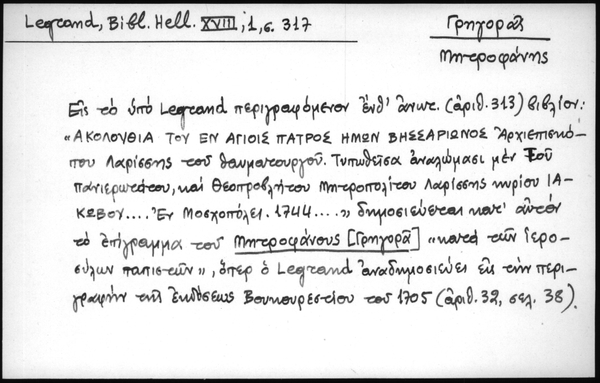 Legrand, Bibl. Hell. XVIII, 1, σ. 317
Γρηγορᾶς
Μητροφάνης
Εἰς τὸ ὑπὸ Legrand περιγραφόμενον ἐνθ' ἀνωτ. (ἀριθ. 313) βιβλίον:
«ΑΚΟΛΟΥΘΙΑ ΤΟΥ ΕΝ ΑΓΙΟΙΣ ΠΑΤΡΟΣ ΗΜΩΝ ΒΗΣΣΑΡΙΩΝΟΣ Ἀρχιεπισκό-
που Λαρίσσης τοῦ θαυματουργοῦ. Τυπωθεῖσα ἀναλώμασι μὲν τοῦ
Πανιερωτάτου, καὶ Θεοπροβλήτου Μητροπολίτου Λαρίσσης κυρίου ΙΑ-
ΚΩΒΟΥ.... Ἐν Μοσχοπόλει. 1744....», δημοσιεύεται κατ' αὐτὸν
τὸ ἐπίγραμμα τοῦ Μητροφάνους [Γρηγορᾶ] «κατὰ τῶν ἱερο-
σύλων παπιστῶν», ὅπερ ὁ Legrand ἀναδημοσιεύει εἰς τὴν περι-
γραφὴν τῆς ἐκδόσεως Βουκουρεστίου τοῦ 1705 (ἀριθ. 32, σελ. 38).